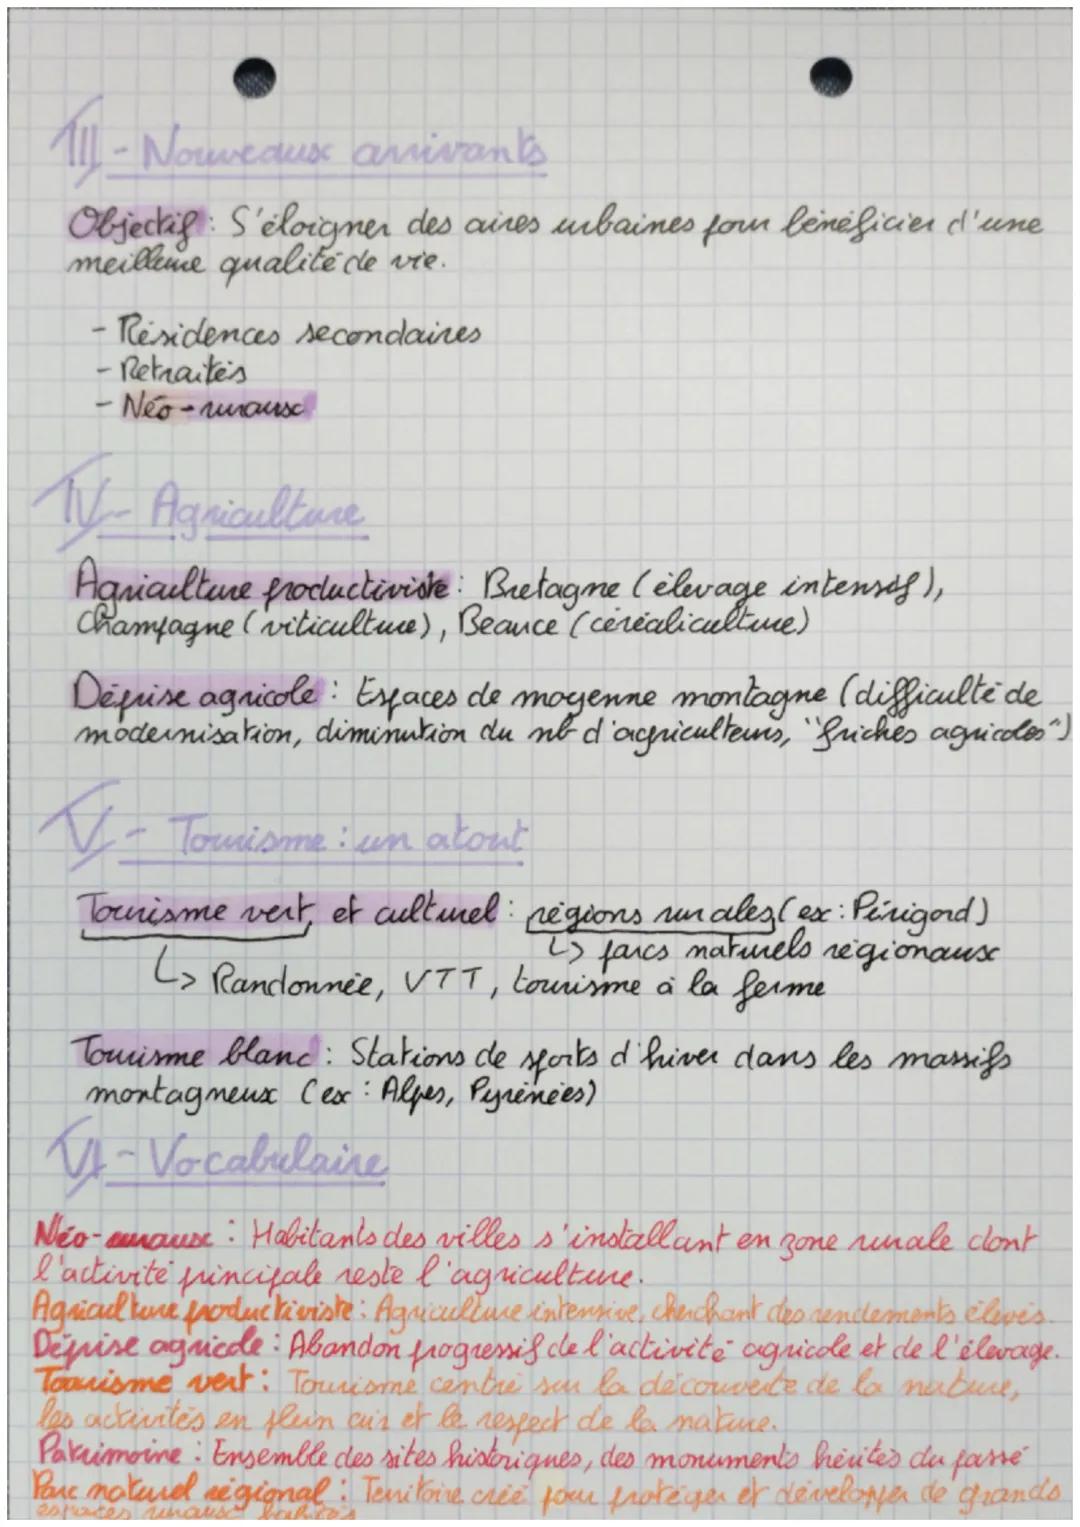 III - Nouveaux arrivants
Objectif : S'éloigner des aires urbaines pour bénéficier d'une
meilleure qualité de vie.
- Résidences secondaires
- Retraités
- Néo-ruraux
IV - Agriculture
Agriculture productiviste : Bretagne (élevage intensif),
Champagne (viticulture), Beauce (céréaliculture)
Déprise agricole : Espaces de moyenne montagne (difficulté de
modernisation, diminution du nb d'agriculteurs, "friches agricoles")
V - Tourisme : un atout
Tourisme vert et culturel : régions rurales (ex : Périgord)
↳ parcs naturels régionaux
↳ Randonnée, VTT, tourisme à la ferme
Tourisme blanc : Stations de sports d'hiver dans les massifs
montagneux (ex : Alpes, Pyrénées)
VI - Vocabulaire
Néo-ruraux : Habitants des villes s'installant en zone rurale dont
l'activité principale reste l'agriculture.
Agriculture productiviste : Agriculture intensive, cherchant des rendements élevés.
Déprise agricole : Abandon progressif de l'activité agricole et de l'élevage.
Tourisme vert : Tourisme centré sur la découverte de la nature,
les activités en plein air et le respect de la nature.
Patrimoine : Ensemble des sites historiques, des monuments hérités du passé
Parc naturel régional : Territoire créé pour protéger et développer de grands
espaces ruraux habités